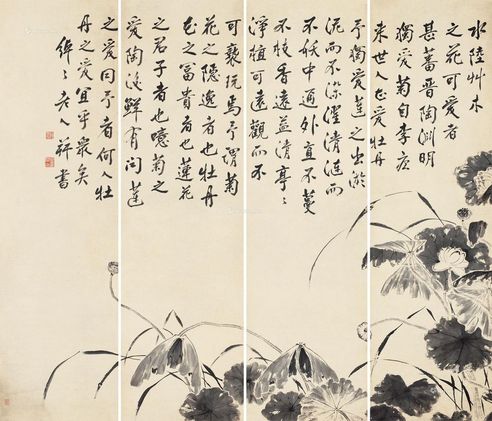 水陸艸木
之花可愛者
甚蕃晉陶淵明
獨愛菊自李唐
来世人愛牡丹
予獨愛蓮之出淤
泥而不染濯清漣而
不妖中通外直不蔓
不枝香遠益清亭〻
淨植可遠觀而不
可褻玩焉予謂菊
花之隱逸者也牡丹
花之富貴者也蓮花
之君子者也噫菊之
愛陶後鮮有聞蓮
之愛同予者何人牡
丹之愛宜乎眾矣
老人并書